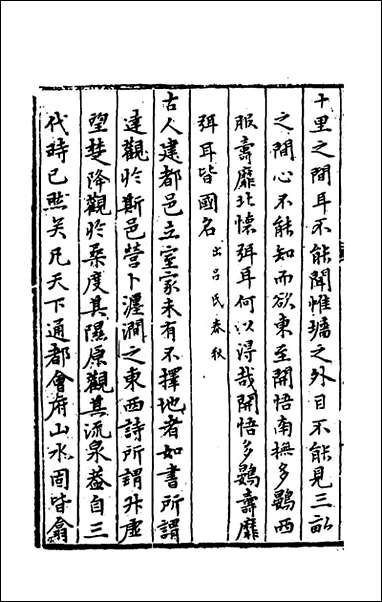 十里之間耳不能聞惟墻之外目不能見三畝
之間心不能知而欲東至開悟南撫多鷃西
服壽靡北懷弭耳何以得哉開悟多鷃壽靡
弭耳皆國名出吕氏春秋
古人建都邑立室家未有不擇地者如書所謂
達觀於斯邑營卜瀍澗之東西詩所謂升虛
望楚降觀於桑度其隰原觀其流泉葢自三
代時已然矣凡天下通都會府山水固皆翕